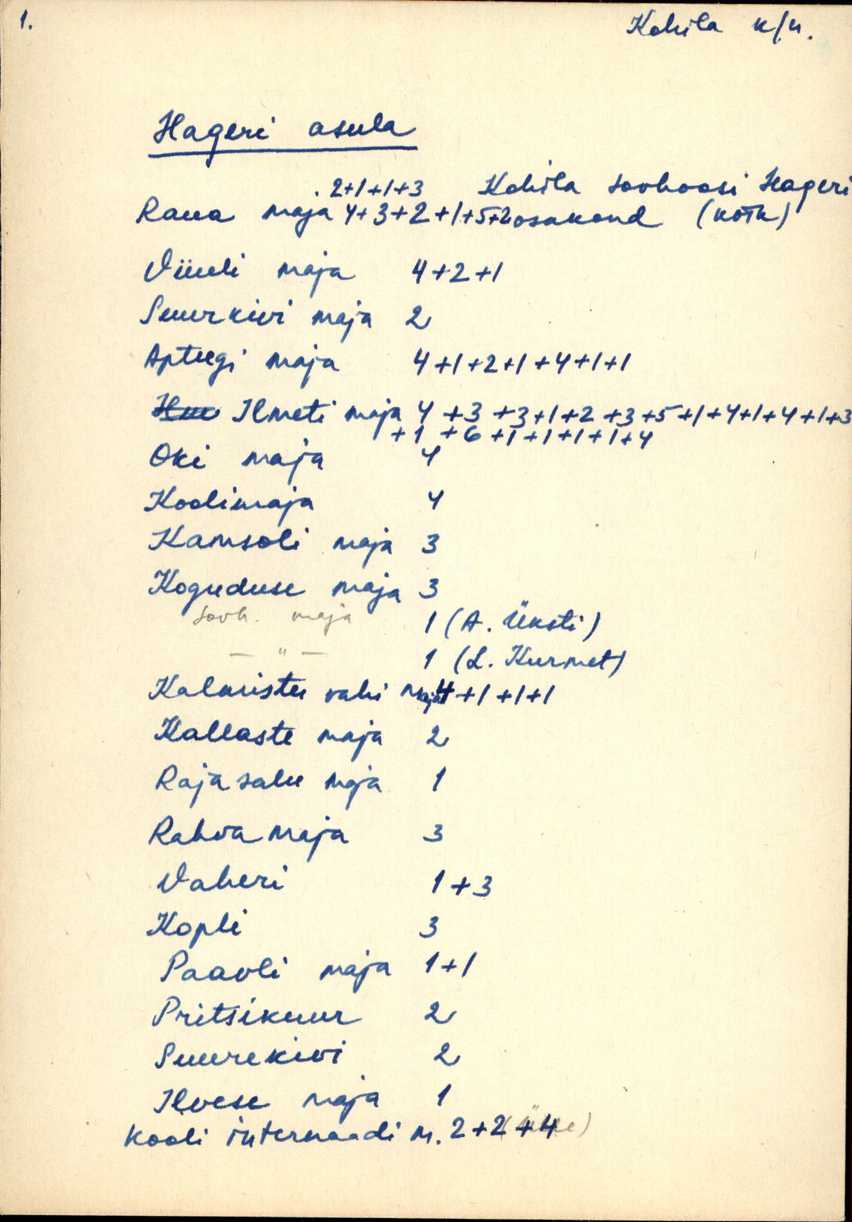 1.
Kohila k/n.
Hageri asula
2+1+1+3 Kohila sovhoosi Hageri
Raua maja 4+3+2+1+5+2 osakond (kõik)
Viiuli maja 4+2+1
Suurkivi maja 2
Apteegi maja 4+1+2+1+4+1+1
Ilmeti maja 4+3+3+1+2+3+5+1+4+1+4+1+3
+1+6+1+1+1+1+4
Oki maja 4
Koolimaja 4
Kamsoli maja 3
Koguduse maja 3
Sovh. maja 1 (A. Üksti)
— " — 1 (L. Kurmet)
Kalmistu vahi maja 4+1+1+1
Kallaste maja 2
Rajasalu maja 1
Rahvamaja 3
Vaheri 1+3
Kopli 3
Paavli maja 1+1
Pritsikuur 2
Suurekivi 2
Ilvese maja 1
Kooli internaadi m. 2+2+4